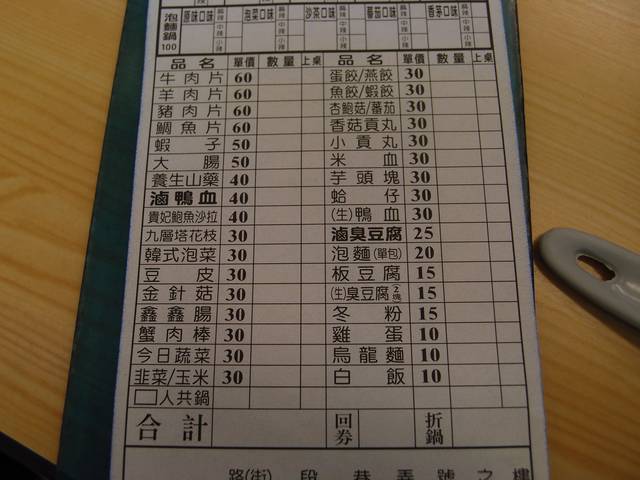 泡麵鍋 100 原味口味 泡菜口味 沙茶口味 蕃茄口味 香茅口味
品名 單價 數量 上桌 品名 單價 數量 上桌
牛肉片 60 蛋餃/燕餃 30
羊肉片 60 魚餃/蝦餃 30
豬肉片 60 杏鮑菇/蕃茄 30
鯛魚片 60 香菇貢丸 30
蝦子 50 小貢丸 30
大腸 50 米血 30
養生山藥 40 芋頭塊 30
滷鴨血 40 蛤仔 30
貴妃鮑魚沙拉 40 (生)鴨血 30
九層塔花枝 30 滷臭豆腐 25
韓式泡菜 30 泡麵(單包) 20
豆皮 30 板豆腐 15
金針菇 30 (生)臭豆腐2塊 15
鑫鑫腸 30 冬粉 15
蟹肉棒 30 雞蛋 10
今日蔬菜 30 烏龍麵 10
韭菜/玉米 30 白飯 10
□人共鍋
合計 回券 折鍋
路(街) 段 巷 弄 號 之 樓